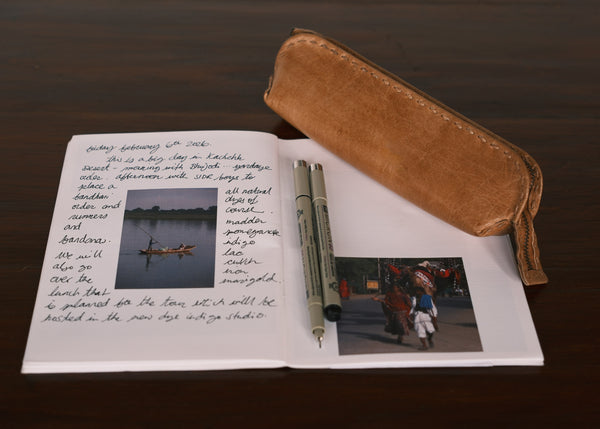 Friday February 6th 2026.
this is a big day in Kachchh
desert - morning with Shyodi ... yardage
order. afternoon with SIDR boys to
place a
bandhani
order and
runners
and
bandana.
We will
also go
over the
lunch that
all natural
dyes of
course.
madder
pomegranate
indigo
lac
cutch
iron
marigold.
is planned for the tour which will be
hosted in the new dye indigo studio.